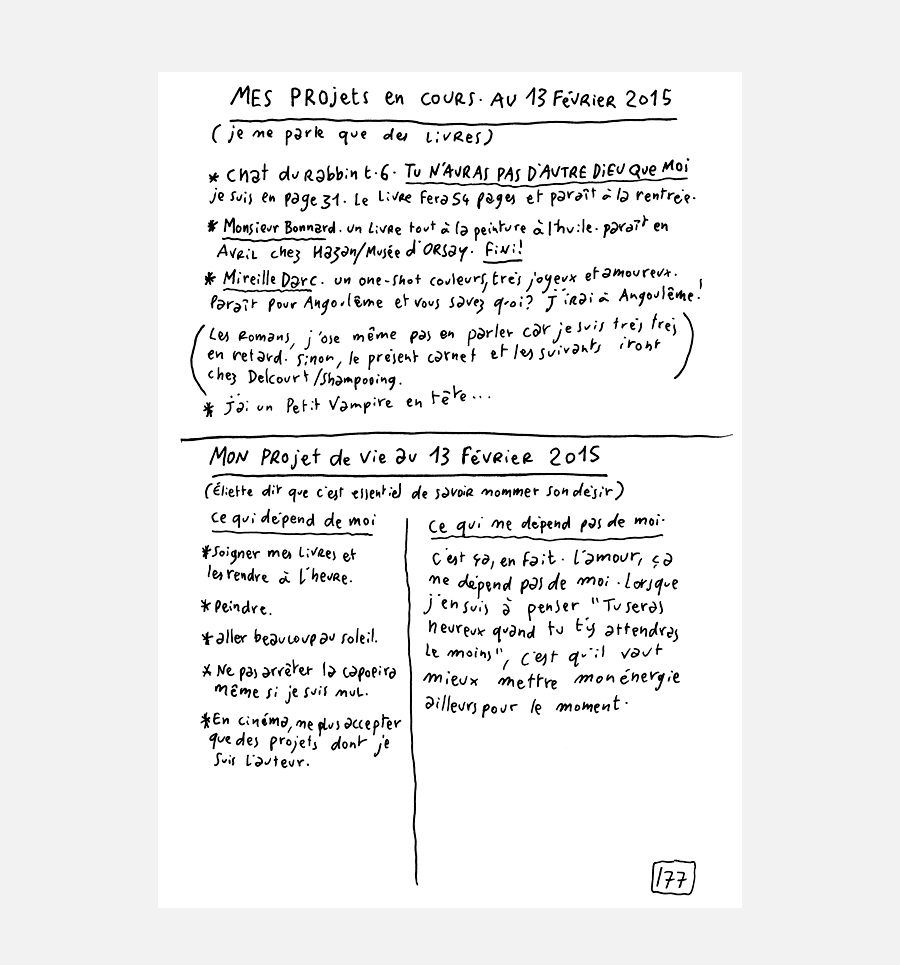 MES PROjets en COURS. AU 13 FÉVRIER 2015
(je ne parle que des LIVRES)
* chat du Rabbin t.6. TU N'AURAS PAS D'AUTRE DIEU QUE MOI
je suis en page 31. Le LIVRE fera 54 pages et paraît à la rentrée.
* Monsieur Bonnard. un LIVRE tout à la peinture à l'huile. paraît en
AVRIL chez HAZAN/Musée d'ORSAY. FiNi!
* Mireille Darc. un one-shot couleurs, très joyeux et amoureux.
Paraît pour Angoulême et vous savez quoi? J'irai à Angoulême!
(Les Romans, j'ose même pas en parler car je suis très très
en retard. Sinon, le présent carnet et les suivants iront
chez Delcourt/Shampooing.)
* j'ai un Petit Vampire en tête...
MON PROjet de vie au 13 FÉVRIER 2015
(Éliette dit que c'est essentiel de savoir nommer son désir)
ce qui dépend de moi
*Soigner mes LIVRES et
les rendre à l'heure.
*Peindre.
*aller beaucoup au soleil.
*Ne pas arrêter la capoeira
même si je suis nul.
*En cinéma, ne plus accepter
que des projets dont je
suis l'auteur.
ce qui ne dépend pas de moi.
C'est ça, en fait. l'amour, ça
ne dépend pas de moi. Lorsque
j'en suis à penser "Tu seras
heureux quand tu t'y attendras
le moins", c'est qu'il vaut
mieux mettre mon énergie
ailleurs pour le moment.
177